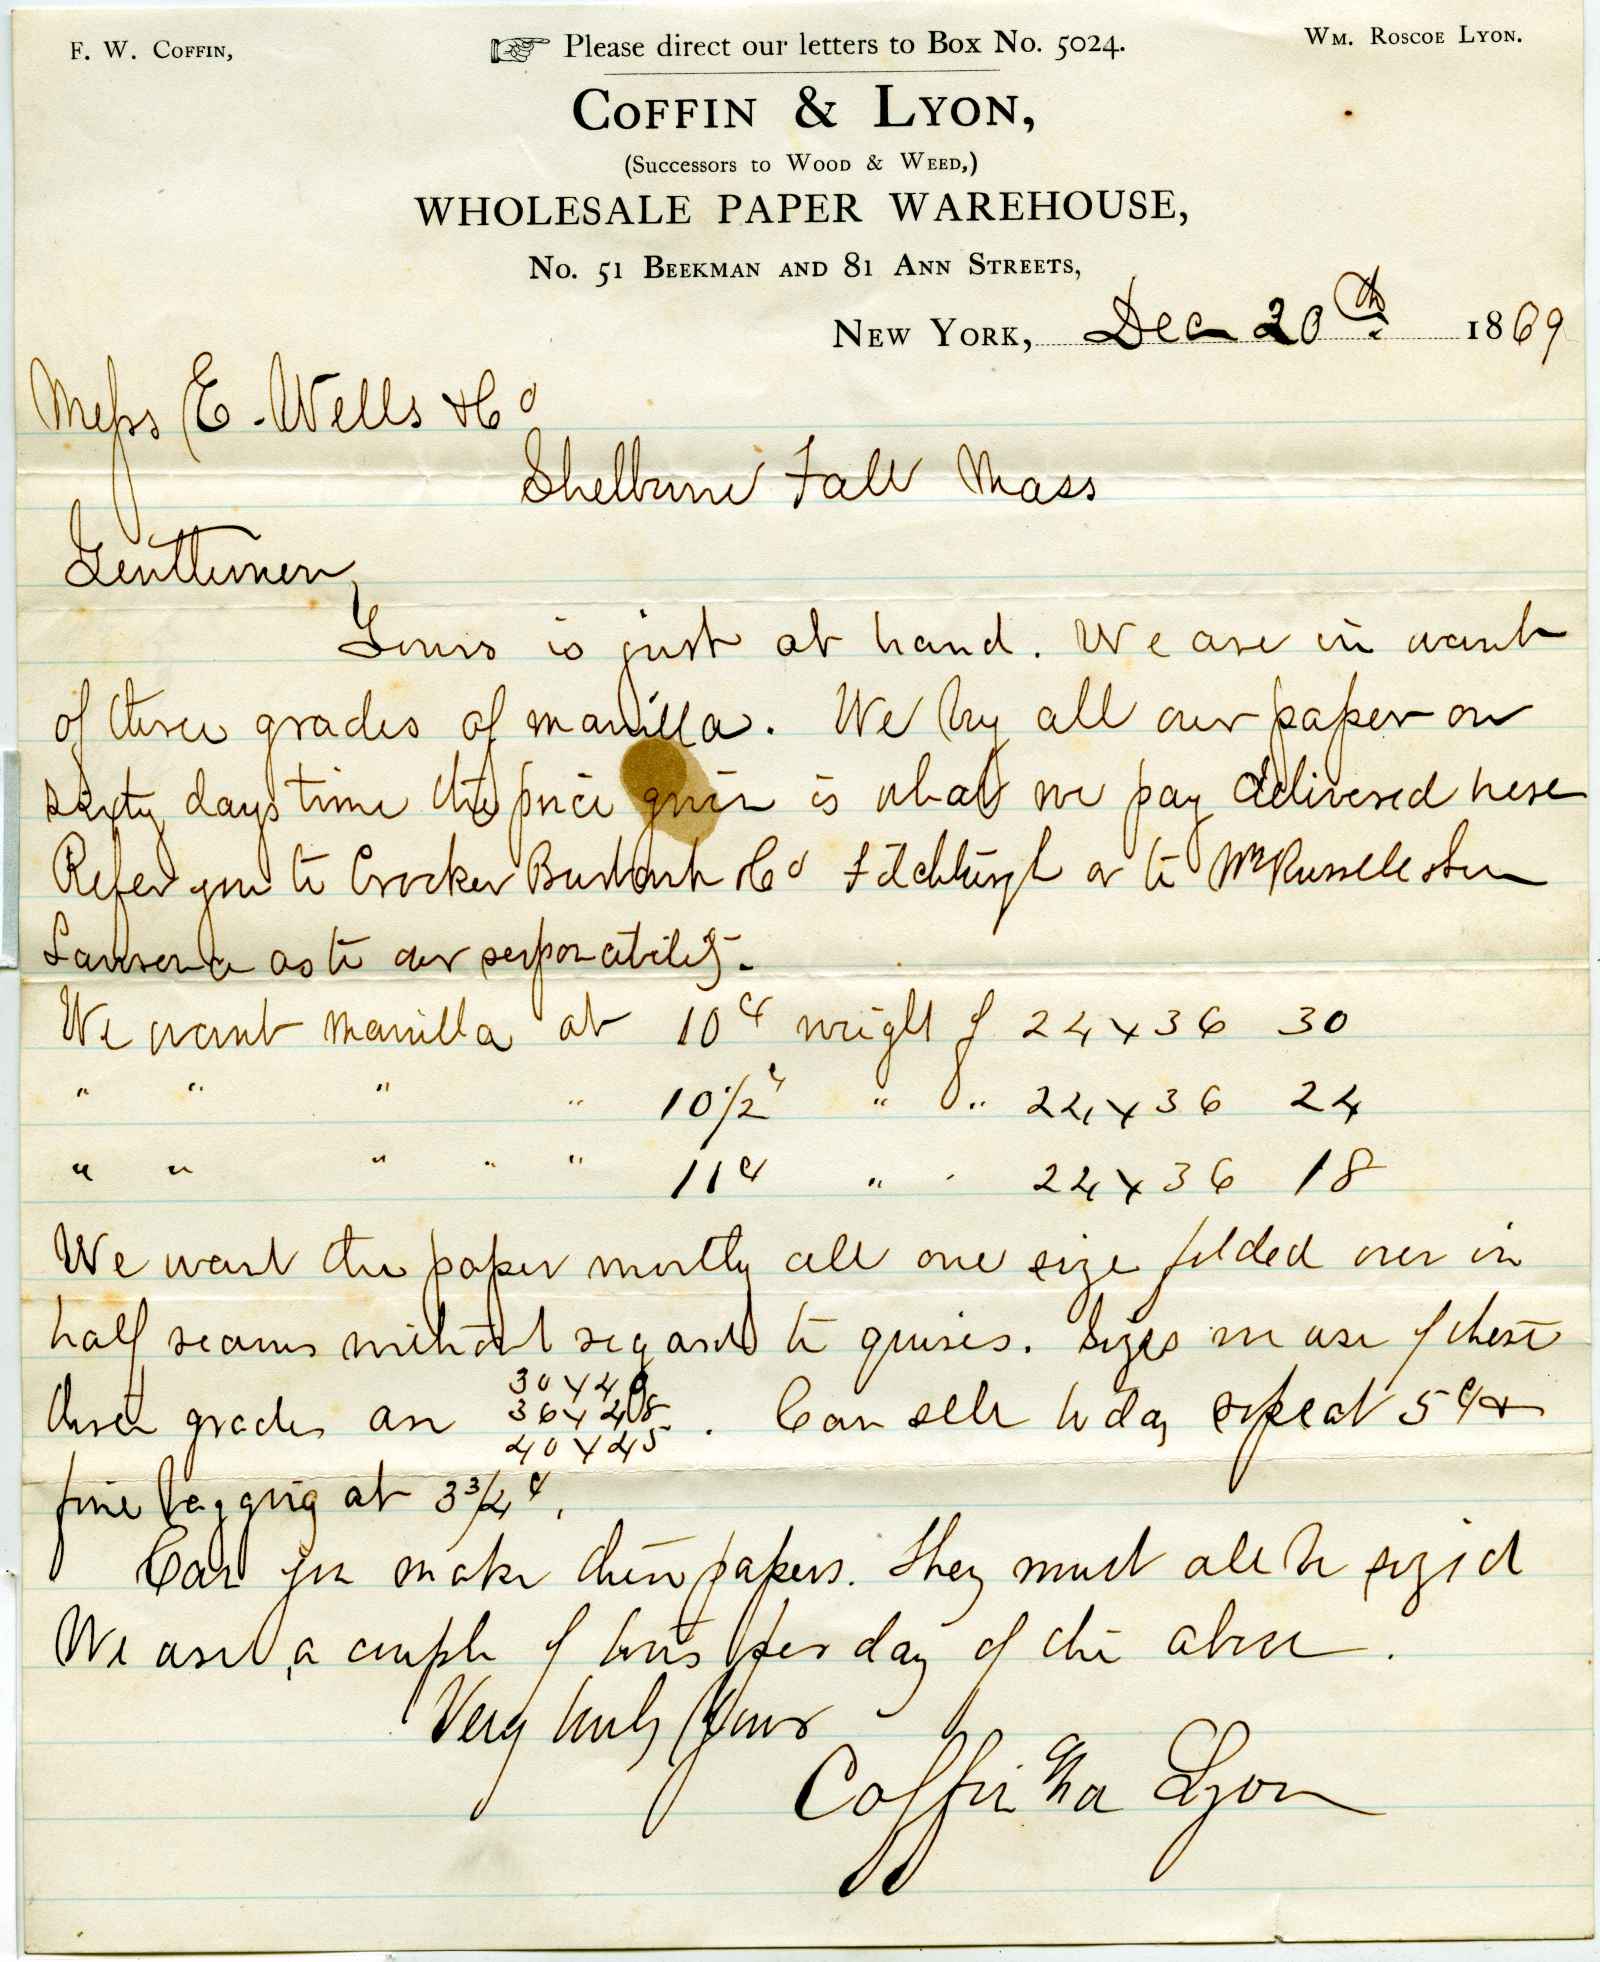 F. W. Coffin,
Please direct our letters to Box No. 5024.
Wm. Roscoe Lyon.
Coffin & Lyon,
(Successors to Wood & Weed,)
WHOLESALE PAPER WAREHOUSE,
No. 51 Beekman and 81 Ann Streets,
New York, Dec 20th 1869
Mess E. Wells & Co
Shelburne Fall Mass
Gentlemen,
Yours is just at hand. We are in want
of three grades of manilla. We buy all our paper on
sixty days time the price given is what we pay delivered here
Refer you to Crocker Burbank & Co Fitchburgh or to Wm Russell & Son
Lawrence as to our responsibility.
We want manilla at 10c weight of 24x36 30
" " " " 10½c " " 24x36 24
" " " " " 11c " " 24x36 18
We want the paper mostly all one size folded over in
half reams without regard to quires. Sizes we use of these
three grades are
30x40
36x48
40x45
. Can sell today rope at 5c &
fine bagging at 3¾c.
Can you make these papers. They must all be sized
We use a couple of tons per day of the above.
Very truly yours
Coffin & Lyon